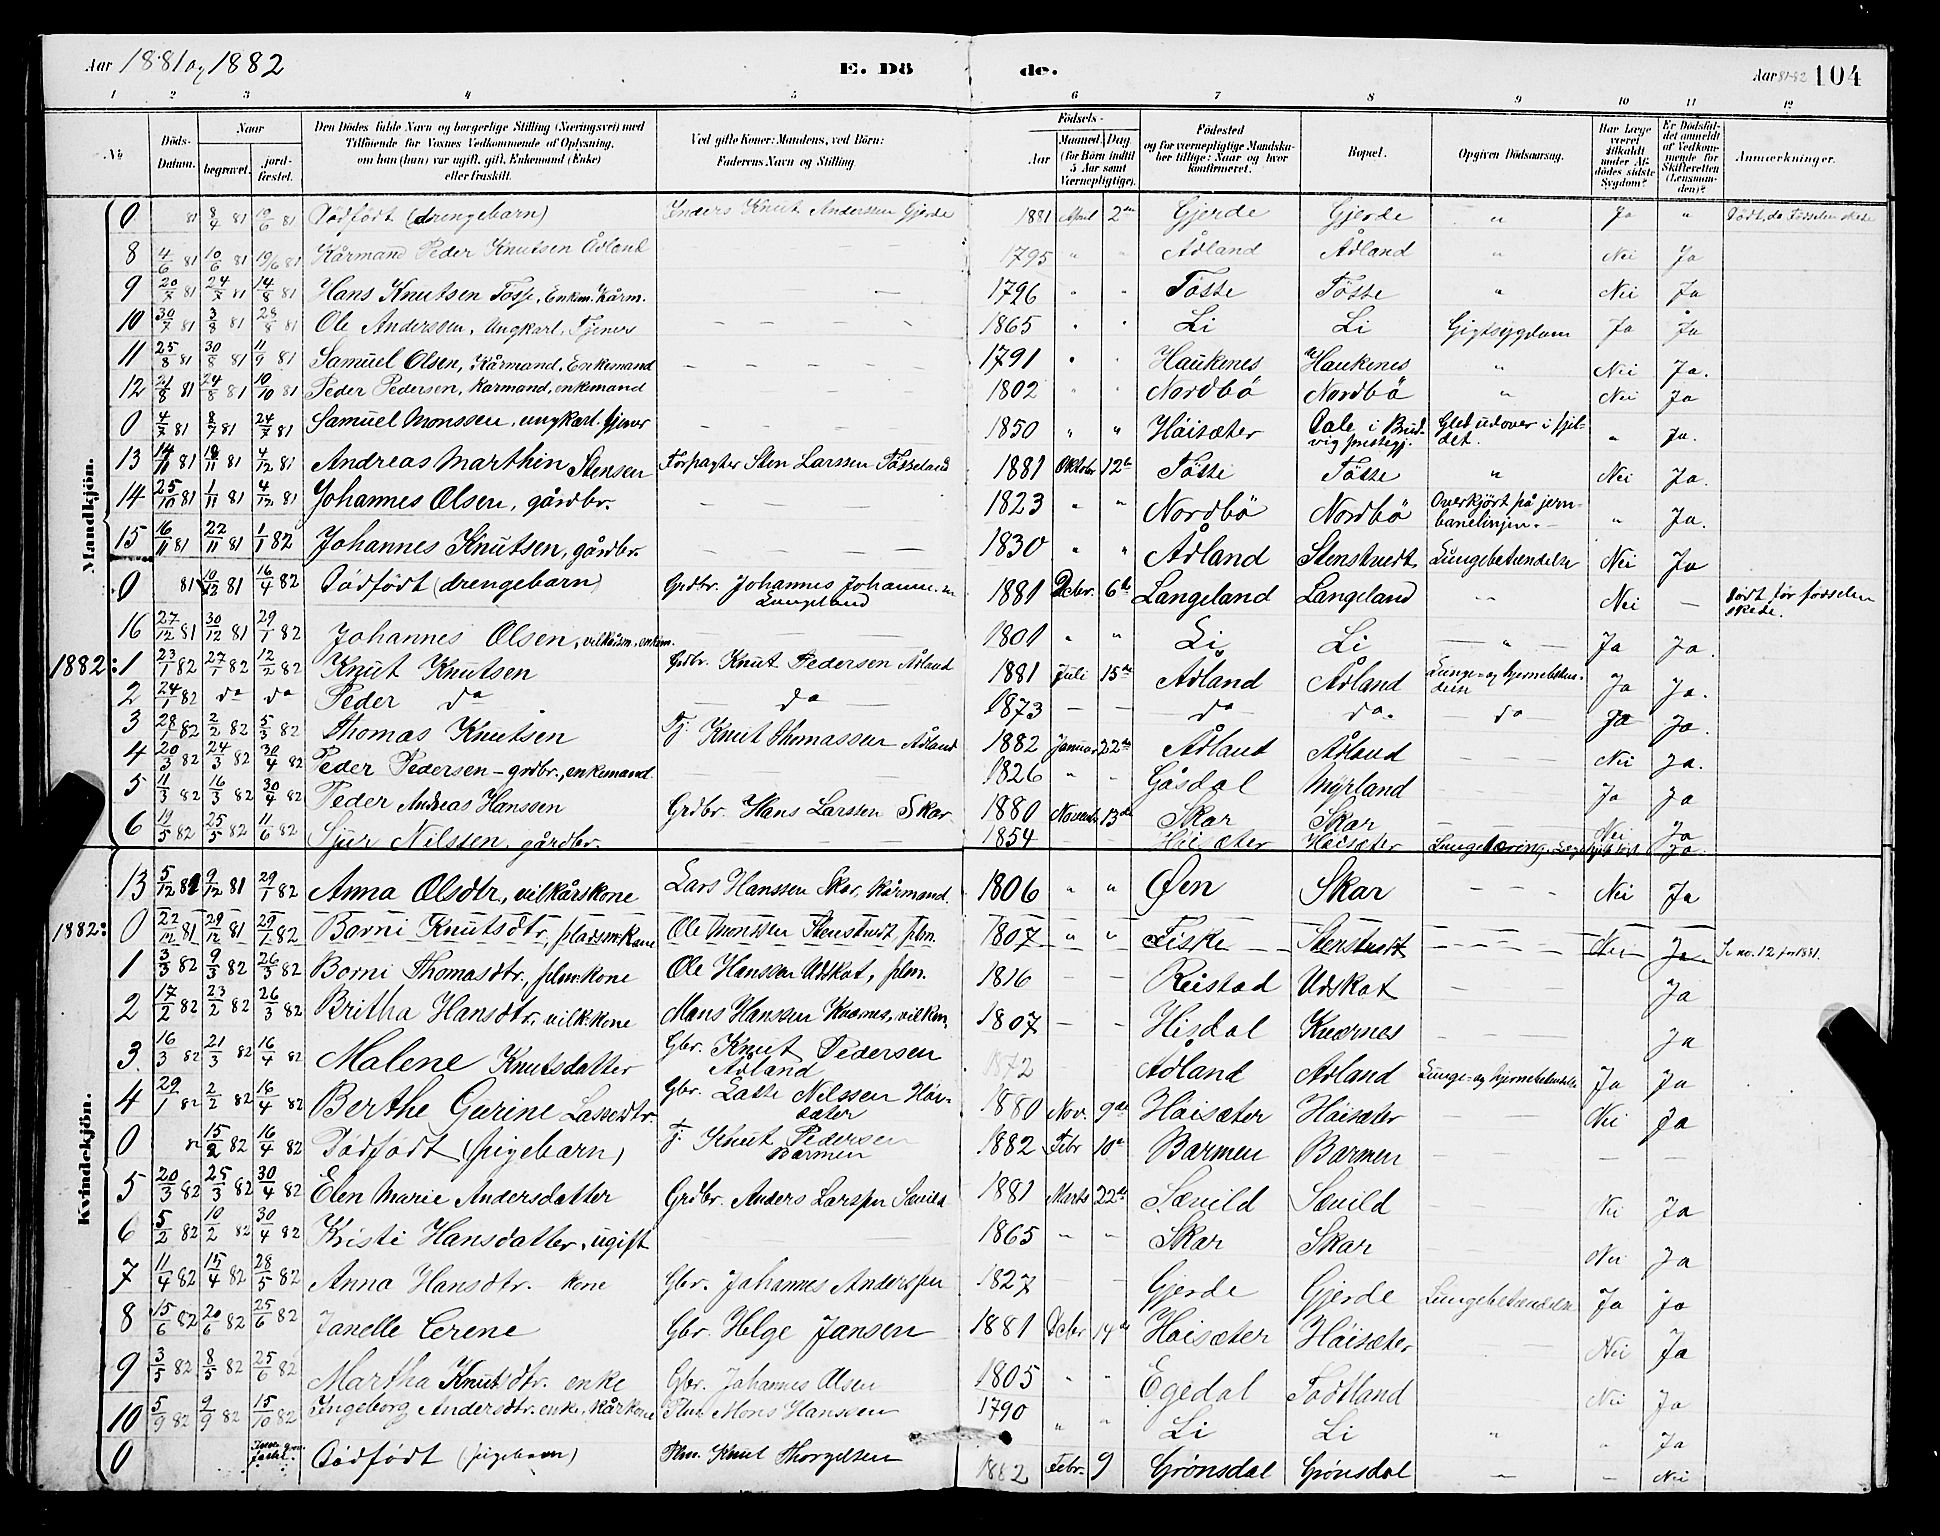 Aar 1881 og 1882 E. Dö de. Aar 81-82 104
1 2 3 4 5 6 7 8 9 10 11 12
No Döds-Datum. Naar begravet. jordfæstet. Den Dödes fulde Navn og borgerlige Stilling (Næringsvei) med Tilföiende for Voxnes Vedkommende af Oplysning, om han (hun) var ugift, gift, Enkemand (Enke) eller fraskilt. Ved gifte Koner: Mandens, ved Börn: Faderens Navn og Stilling. Födsels- Aar Maaned. Dag. (for Börn indtil 5 Aar samt Værnepligtige). Födested og for værnepligtige Mandskaber tillige: Naar og hvor konfirmeret. Bopæl. Opgiven Dödsaarsag. Har Læge været tilkaldt under Afdödes sidste Sygdom? Er Dödsfaldet anmeldt af Vedkommende for Skifteretten (Lensmanden)? Anmærkninger.
Mandkjön.
0 81 8/4 81 19/6 81 Dödfödt (drengebarn) Inders Knut Anderssen Gjerde 1881 April 2den Gjerde Gjerde " Ja " Dödt, da Födselen skete
8 4/6 81 10/6 81 19/6 81 Kårmand Peder Knutsen Ådland — — — 1795 " " Ådland Ådland " Nei Ja
9 20/7 81 24/7 81 14/8 81 Hans Knutsen Tösse, Enkm. Kårm. — 1796 " " Tösse Tösse " Nei Ja
10 30/7 81 3/8 81 28/8 81 Ole Anderssen, Ungkarl, Tjener — — 1865 " " Li Li Gigtsygdom Ja Ja
11 25/8 81 30/8 81 11/9 81 Samuel Olsen, Kårmand, Enkemand — — — — 1791 " Haukenes Haukenes " Nei Ja.
12 21/8 81 24/8 81 10/10 81 Peder Pedersen, Kårmand, enkemand 1802 " " Nordbö Nordbö " Nei Ja
0 4/7 81 8/7 81 24/7 81 Samuel Monssen, ungkarl. tjener — — — 1850 " " Håisæter Dale i Brudvig prestegj. Gled udover i fjeldet. " Ja.
13 14/11 81 18/11 81 4/12 81 Andreas Marthin Stensen Forpagter Sten Larssen Tösseland 1881 Oktober 12te Tösse Tösse " Nei Ja.
14 25/10 81 1/11 81 4/12 81 Johannes Olsen, gårdbr. — — 1823 " " Nordbö Nordbö Overkjört på jernbanelinjen. — " Ja.
15 16/11 81 22/11 81 1/1 82 Johannes Knutsen, gårdbr. — — — — 1830 " " Ådland Stenstvedt Lungebetændelse Nei Ja
0 81 10/12 81 16/4 82 Dödfödt (drengebarn) Grdbr. Johannes Langeland 1881 Decbr. 6te Langeland Langeland " Nei — Dödt för födselen skede.
16 27/12 81 30/12 81 29/1 82 Johannes Olsen, vilkårm. enkem. — — 1801 " " Li Li — " — Ja Ja.
1882: 1 23/1 82 27/1 82 12/2 82 Knut Knutsen Grdbr. Knut Pedersen Ådland 1881 Juli 15de Ådland Ådland Lunge- og hjernebetændelse Ja Ja.
2 24/1 82 do do Peder do — do — 1873 — — do do. — do — Ja Ja.
3 28/1 82 2/2 82 5/3 82 Thomas Knutsen Tj. Knut Thomassen Ådland 1882 Januar 22de Ådland Ådland — — — Nei Ja.
4 20/3 82 24/3 82 30/4 82 Peder Pedersen – grdbr., enkemand — — — 1826 " " Gåsdal Myrland — — Ja Ja
5 11/3 82 16/3 82 30/4 82 Peder Andreas Hanssen Grdbr. Hans Larssen Skar 1880 Novemb. 13de Skar Skar — Nei Ja
6 19/5 82 25/5 82 11/6 82 Sjur Nilssen, gårdbr. — — 1854 — — Håisæter Håisæter Lungetæring. Ja.
Kvindekjön.
13 5/12 81 9/12 81 29/1 82 Anna Olsdtr., vilkårskone Lars Hanssen Skar, Kårmand. 1806 " " Øen Skar — — Nei Ja
1882: 0 22/12 81 29/12 81 29/1 82 Borni Knutsdtr., pladsm. kone Ole Monssen Stenstvedt, plm. 1807 " " Fiske Stenstvedt — — — Nei Ja Se no. 12 for 1881.
1 3/3 82 9/3 82 26/3 82 Borni Thomasdtr., plm. kone Ole Hanssen Udskot, plm. 1816 — — Reistad Udskot — — Ja
2 17/2 82 23/2 82 26/3 82 Britha Hansdtr., vilk. kone Mons Hanssen Kvernes, vilkm. 1807 — — Hisdal Kvernes — — Ja
3. 16/3 82 21/3 82 16/4 82 Malene Knutsdatter Gbr. Knut Pedersen Ådland 1872 Ådland Ådland Lunge- og hjernebetændelse Ja Ja
4 29/1 82 2/2 82 16/4 82 Berthe Gurine Lassesdtr. Gbr. Lasse Nilssen Håisæter 1880 Nov. 9de Håisæter Håisæter — — Nei Ja
0 15/2 82 16/4 82 Dödfödt (pigebarn) Tj. Knut Pedersen Barmen 1882 Febr 10de Barmen Barmen — — — —
5 20/3 82 25/3 82 30/4 82 Elen Marie Andersdatter Grdbr. Anders Larssen Sævild 1881 Marts 22de Sævild Sævild Nei Ja
6 5/2 82 10/2 82 30/4 82 Kristi Hansdatter, ugift — — 1865 " " Skar Skar — — Nei Ja
7 11/4 82 15/4 82 28/5 82 Anna Hansdtr. kone Gbr. Johannes Anderssen 1827 — Gjerde Gjerde Lungebetændelse Ja Ja
8 15/6 82 20/6 82 25/6 82 Janelle Cerene Gbr. Helge Jansen 1881 Decbr 14de Håisæter Håisæter — — Nei Ja
9 3/5 82 8/5 82 25/6 82 Martha Knutsdtr. enke Gbr. Johannes Olsen 1805 " " Egedal Todtland Nei Ja
10 5/9 82 9/9 82 15/10 82 Ingeborg Andersdtr. enke, kårkone Plm. Mons Hanssen 1790 " " Li Li " " Ja
0 Dödfödt (pigebarn) Plm. Knut Thorgilsen 1882 Febr. 9 Grönsdal Grönsdal " " Nei